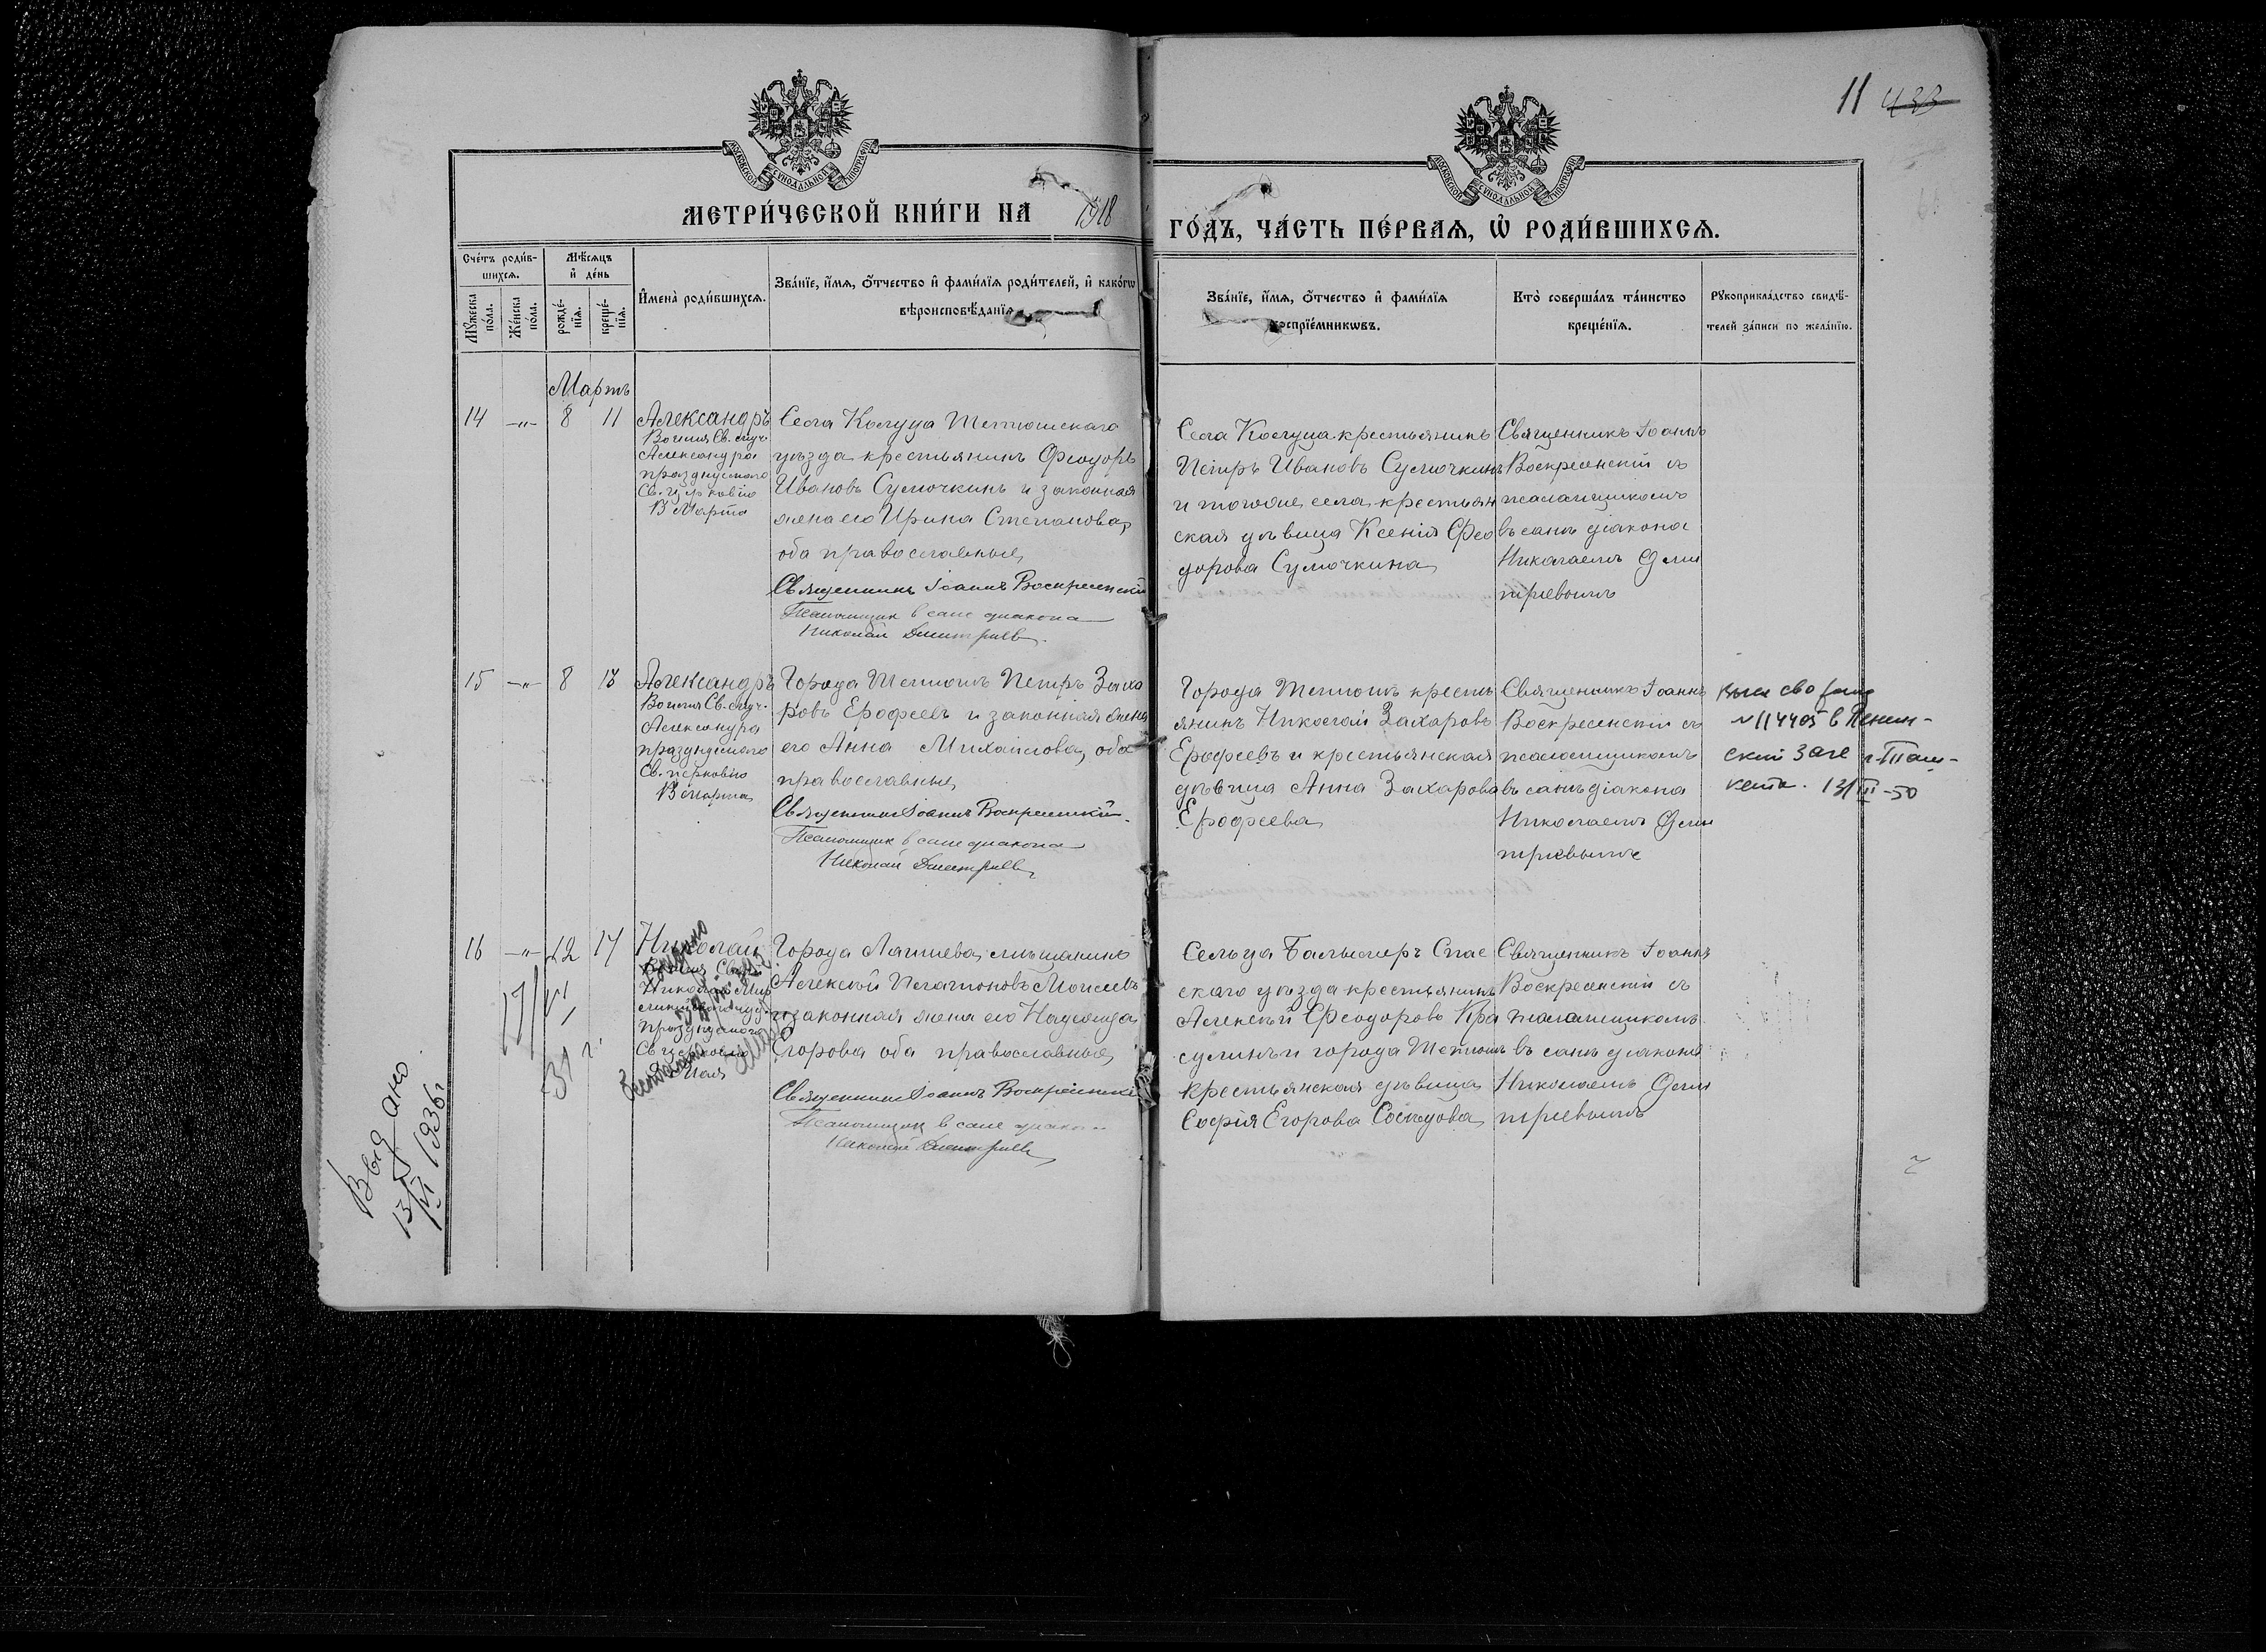 11 433
МОСКОВСКОЙ СѴНОДАЛЬНОЙ ТИПОГРАФІИ
МОСКОВСКОЙ СѴНОДАЛЬНОЙ ТИПОГРАФІИ
МЕТРИ́ЧЕСКОЙ КНИ́ГИ НА 1918
ГО́ДЪ, ЧА́СТЬ ПЕ́РВАѦ, Ѡ҆ РОДИ́ВШИХСѦ.
Сче́тъ роди́в-
шихсѧ.
Мꙋ́жеска
по́ла.
Же́нска
по́ла.
Мѣ́сѧцъ
и҆ де́нь
рожде́-
нїѧ.
креще́-
нїѧ.
И҆мена̀ роди́вшихсѧ.
Зва́нїе, и҆́мѧ, ѻ҆́тчество и҆ фами́лїѧ роди́телей, и҆ како́гѡ
вѣроисповѣ́данїѧ
Зва́нїе, и҆́мѧ, ѻ҆́тчество и҆ фами́лїѧ
воспрїе́мникѡвъ.
Кто̀ соверша́лъ та́инство
креще́нїѧ.
Рꙋкоприкла́дство свидѣ́-
телей за́писи по жела́нїю.
Мартъ
14 -„- 8 11
Александръ
Во имя Св. муч.
Александра
празднуемаго
Св. церковію
В Марта
Села Колуца Тетюшскаго
уѣзда крестьянинъ Ѳеодоръ
Ивановъ Сумочкинъ и законная
жена его Ирина Степанова,
оба православные,
Священникъ Іоаннъ Воскресенскій
Псаломщик в сане диакона
Николай Дмитриев.
Села Колуца крестьянинъ
Петръ Ивановъ Сумочкинъ
и тогоже села крестьян
ская дѣвица Ксенія Ѳео
дорова Сумочкина
Священникъ Іоаннъ
Воскресенскій съ
псаломщикомъ
въ санѣ діакона
Николаемъ Дми
тріевымъ
15 -„- 8 18
Александръ
Во имя Св. муч.
Александра
празднуемаго
Св. церковію
В марта
Города Тетюшъ Петръ Заха
ровъ Ерофеевъ и законная жена
его Анна Михаилова, оба
православные,
Священникъ Іоаннъ Воскресенскій.
Псаломщик в сане диакона
Николай Дмитриев
Города Тетюшъ кресть
янинъ Николай Захаровъ
Ерофеевъ и крестьянская
дѣвица Анна Захарова
Ерофеева
Священникъ Іоаннъ
Воскресенскій съ
псаломщикомъ
въ санѣ діакона
Николаемъ Дми
тріевымъ
№ 114405 в Ленин-
ский Загс г. Таш-
кента. 13/III-50
16 -„- 12 17
Николай
Города Лаишева мѣщанинъ
Алексѣй Платоновъ Моисеевъ
и законная жена его Надежда
Егорова оба православные,
Священникъ Іоаннъ Воскресенскій
Псаломщик в сане диакона
Николай Дмитриев
Сельца Балымеръ Спас
скаго уѣзда крестьянинъ
Алексѣй Ѳеодоровъ Кра
сулинъ и города Тетюшъ
крестьянская дѣвица
Софія Егорова Соседова
Священникъ Іоаннъ
Воскресенскій съ
псаломщикомъ
въ санѣ діакона
Николаемъ Дми
тріевымъ
31 г.
Выдано
13/VI 1936г